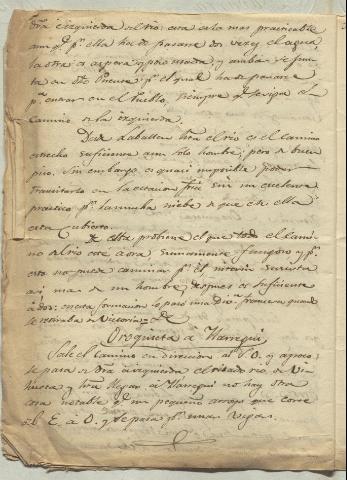 dra é izquierda al rio: aora es la mas practicable
aunq.e p.r ella ha de pasarse dos vezes el agua
la otra es aspera y poco usada, y ambas se jun
tan en dho Puente; p.r el qual ha de pasarse
p.a entrar en el Pueblo, siempre q.e se siga el
camino de la izquierda.
Desde la hasta el rio es el camino
estrecho suficiente a un solo hombre; pero de buen
piso. Sin embargo es quasi imposible poder
transitarlo en la estacion fria sin un excelente
practico p.r la mucha niebe de que en ella
esta cubierto.
De esta probiene el que todo el cami
no al rio este aora, sumamente fangoso y p.r
esto no puede caminar p.r él
asi mas de un hombre, despues es suficiente
á dos: en esta formacion lo pasó una Div.n francesa quando
se retiraba de Victoria =
Oroquieta a Ilarregui
Sale el camino en direccion al S.O. y á poco
se pasa de dra á izquierda el citado rio de
y hta llegar á Ilarregui no hay otra
cosa notable q.e un pequeño arroyo que corre
del E. á O. y se pasa p.r unas Vigas.